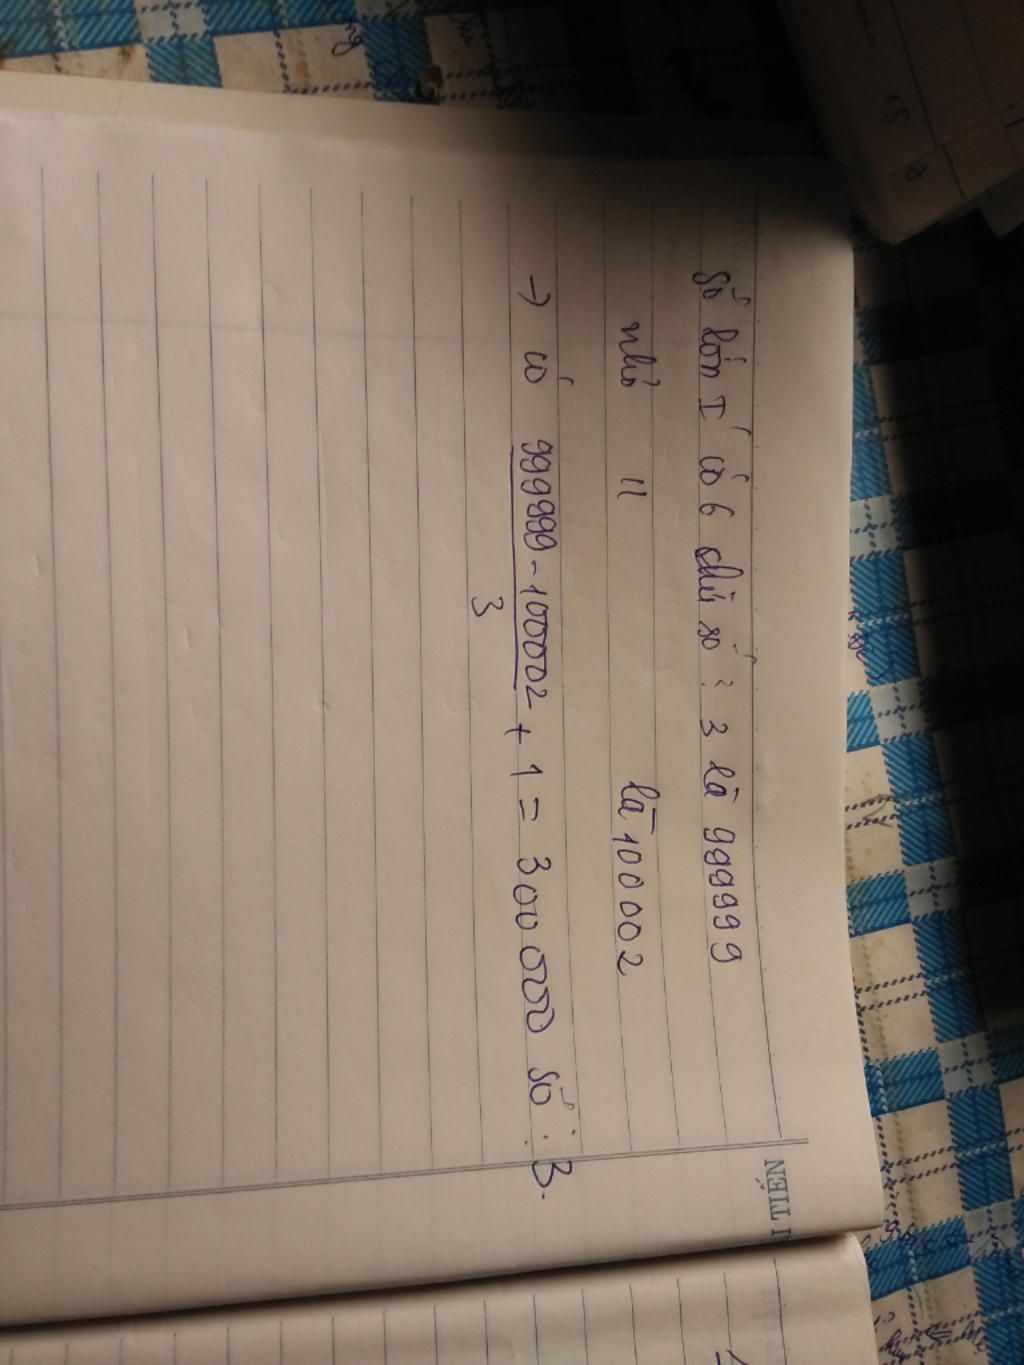 số lớn I có 6 chữ số ⋮ 3 là 999999
nhỏ 11 là 100002
→ có 999999 - 100002 + 1 = 300000 số ⋮ 3.
3
TIẾN
15